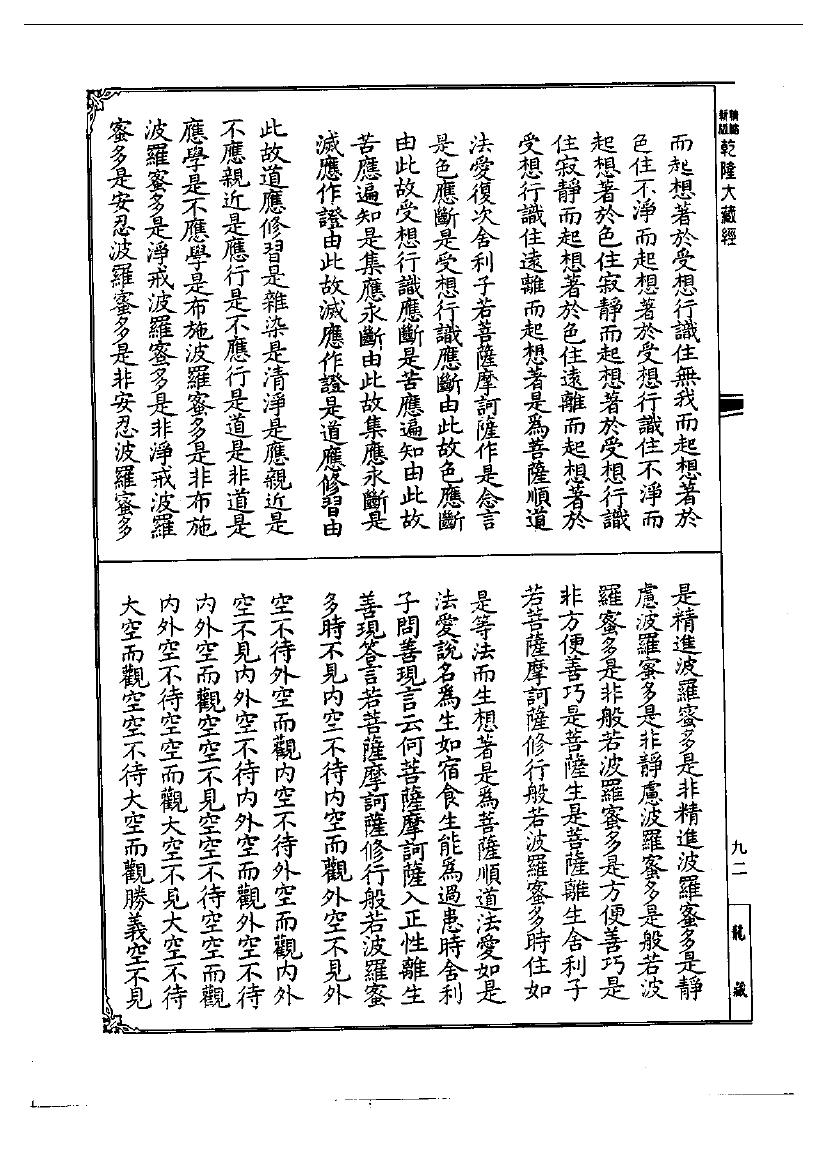 新編縮編乾隆大藏經
而起想著於受想行識住無我而起想著於
色住不淨而起想著於受想行識住不淨而
起想著於色住寂靜而起想著於受想行識
住寂靜而起想著於色住遠離而起想著於
受想行識住遠離而起想著是爲菩薩順道
法愛復次舍利子若菩薩摩訶薩作是念言
是色應斷是受想行識應斷由此故色應斷
由此故受想行識應斷是苦應遍知由此故
苦應遍知是集應永斷由此故集應永斷是
滅應作證由此故滅應作證是道應修習由
此故道應修習是雜染是清淨是應親近是
不應親近是應行是不應行是道是非道是
應學是不應學是布施波羅蜜多是非布施
波羅蜜多是淨戒波羅蜜多是非淨戒波羅
蜜多是安忍波羅蜜多是非安忍波羅蜜多
是精進波羅蜜多是非精進波羅蜜多是靜
慮波羅蜜多是非靜慮波羅蜜多是般若波
羅蜜多是非般若波羅蜜多是方便善巧是
非方便善巧是菩薩生是菩薩離生舍利子
若菩薩摩訶薩修行般若波羅蜜多時住如
是等法而生想著是爲菩薩順道法愛如是
法愛說名爲生如宿食生能爲過患時舍利
子問善現言云何菩薩摩訶薩入正性離生
善現答言若菩薩摩訶薩修行般若波羅蜜
多時不見內空不待內空而觀外空不見外
空不待外空而觀內空不待外空而觀內外
空不見內外空不待內外空而觀外空不待
內外空而觀空空不見空空不待空空而觀
內外空不待空空而觀大空不見大空不待
大空而觀空空不待大空而觀勝義空不見
九二
龍藏